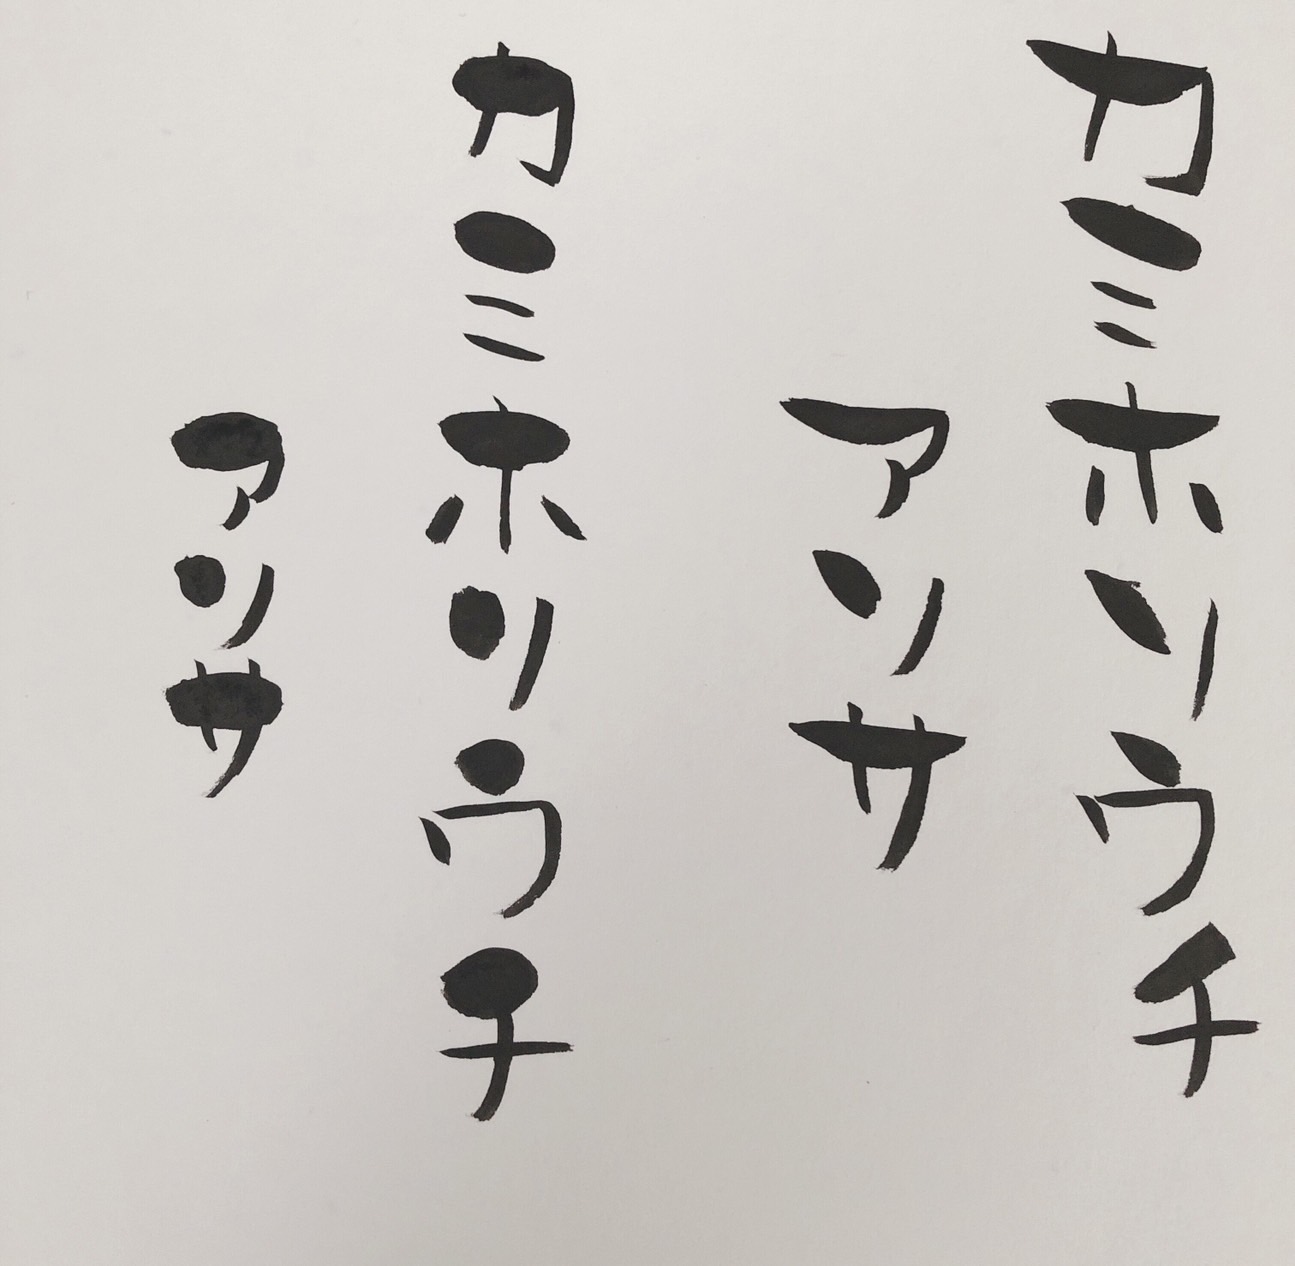 カミホソウチ
アソサ
カミホソウチ
アソサ